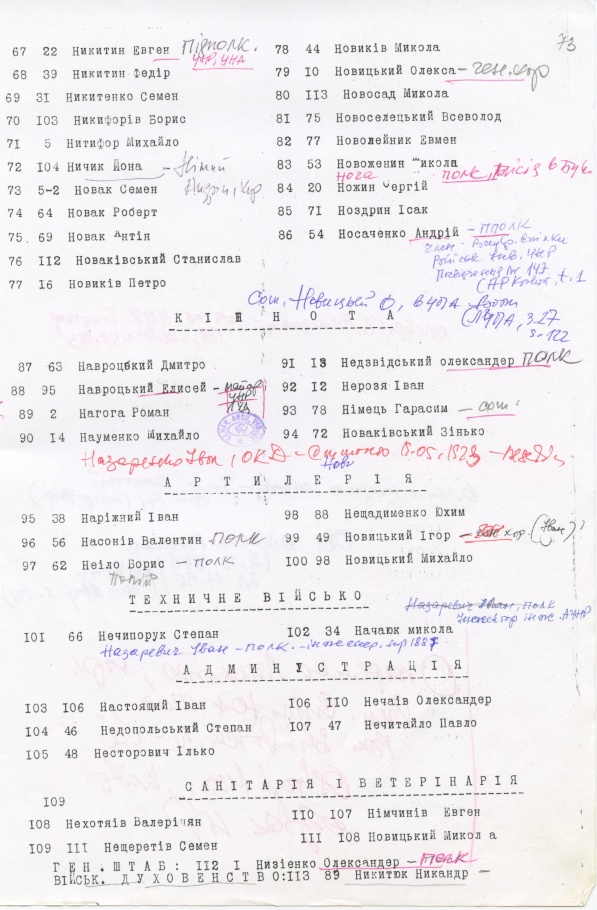 73
67 22 Никитин Евген Підполк.
УНР, УНА
68 39 Никитин Федір
69 31 Никитенко Семен
70 103 Никифорів Борис
71 5 Нитифор Михайло
72 104 Ничик Йона
73 5-2 Новак Семен
74 64 Новак Роберт
75 69 Новак Антін
76 112 Новаківський Станислав
77 16 Новиків Петро
78 44 Новиків Микола
79 10 Новицький Олекса – ген. хор
80 113 Новосад Микола
81 75 Новоселецький Всеволод
82 77 Новолейник Евмен
83 53 Новоженин Микола
Нога полк,
84 20 Ножин Сергій
85 71 Ноздрин Ісак
86 54 Носаченко Андрій – ППолк
Сот. Новицький О, в УПА
К І Н Н О Т А
87 63 Навроцкий Дмитро
88 95 Навроцький Елисей – майор
УНР
89 2 Нагога Роман
90 14 Науменко Михайло
91 13 Недзвідський олександер Полк
92 12 Нерозя Іван
93 78 Німець Гарасим – сот.
94 72 Новаківський Зінько
Назаренко Іван, ОКД
А Р Т И Л Е Р І Я
95 38 Наріжний Іван
96 56 Насонів Валентин Полк
97 62 Неіло Борис – полк
98 88 Нещадименко Юхим
99 49 Новицький Ігор – хор. (Іван)
100 98 Новицький Михайло
Т Е Х Н И Ч Н Е В І Й С Ь К О
Назаревич Іван, полк
101 66 Нечипорук Степан
102 34 Начаюк микола
Назаревич Іван – полк. – інженер, 1887
А Д М И Н І С Т Р А Ц І Я
103 106 Настоящий Іван
104 46 Недопольський Степан
105 48 Несторович Ілько
106 110 Нечаів Олександер
107 47 Нечитайло Павло
С А Н І Т А Р І Я І В Е Т Е Р І Н А Р І Я
109
108 Нехотяів Валеріян
109 111 Нещеретів Семен
110 107 Німчинів Евген
111 108 Новицький Микола
Г Е Н. Ш Т А Б: 112 1 Низіенко Олександер – полк
ВІЙСЬК. Д У Х О В Е Н С Т В О:113 89 Никитюк Никандр –